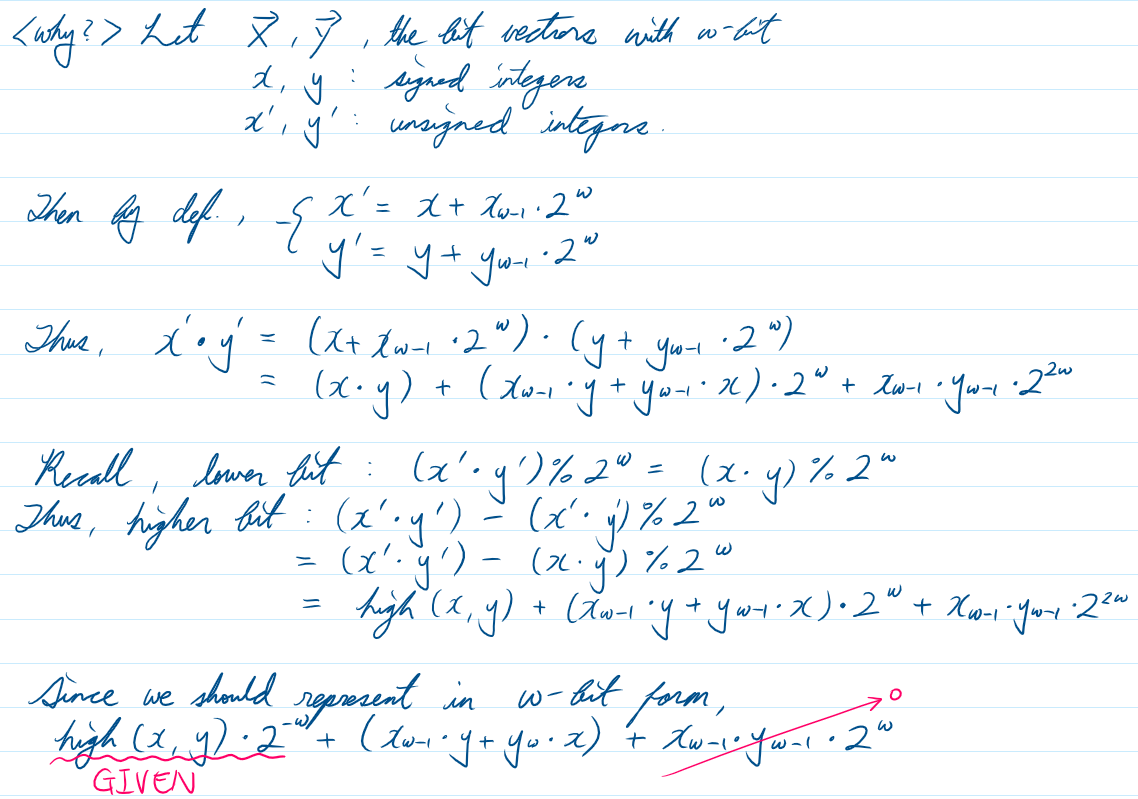 <why?> Let x⃗, y⃗, the bit vectors with w-bit
x, y : signed integers
x', y' : unsigned integers.
Then by def., { x' = x + x_{w-1} · 2^w
y' = y + y_{w-1} · 2^w
Thus, x' · y' = (x + x_{w-1} · 2^w) · (y + y_{w-1} · 2^w)
= (x · y) + (x_{w-1} · y + y_{w-1} · x) · 2^w + x_{w-1} · y_{w-1} · 2^{2w}
Recall, lower bit : (x' · y') % 2^w = (x · y) % 2^w
Thus, higher bit : (x' · y') - (x' · y') % 2^w
= (x' · y') - (x · y) % 2^w
= high (x, y) + (x_{w-1} · y + y_{w-1} · x) · 2^w + x_{w-1} · y_{w-1} · 2^{2w}
Since we should represent in w-bit form,
0
high (x, y) · 2^{-w} + (x_{w-1} · y + y_w · x) + x_{w-1} · y_{w-1} · 2^w
GIVEN